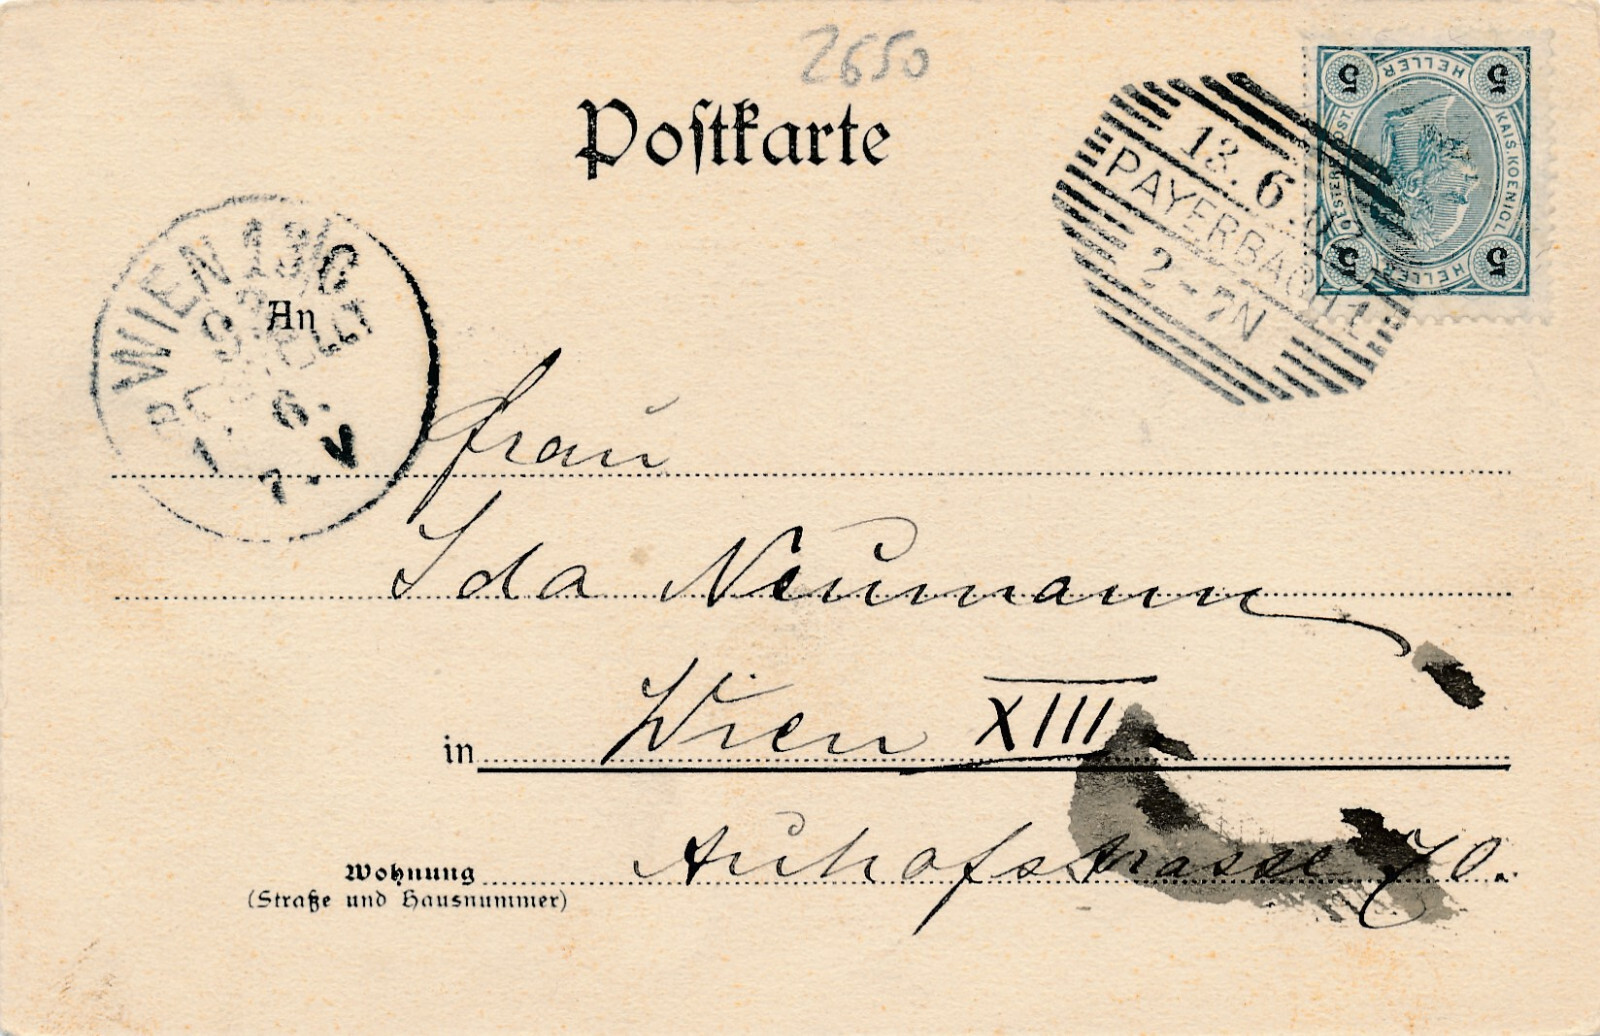 2650
Postkarte
13. 6.
PAYERBACH 1
2-7N
5 HELLER 5
KAIS. KOENIGL.
OESTERR. POST.
5 HELLER 5
WIEN 13/
BESTELLT
6.
7. V
An
Frau
Ida Neumann
in Wien XIII
Wohnung Auhofstrasse 70.
(Straße und Hausnummer)